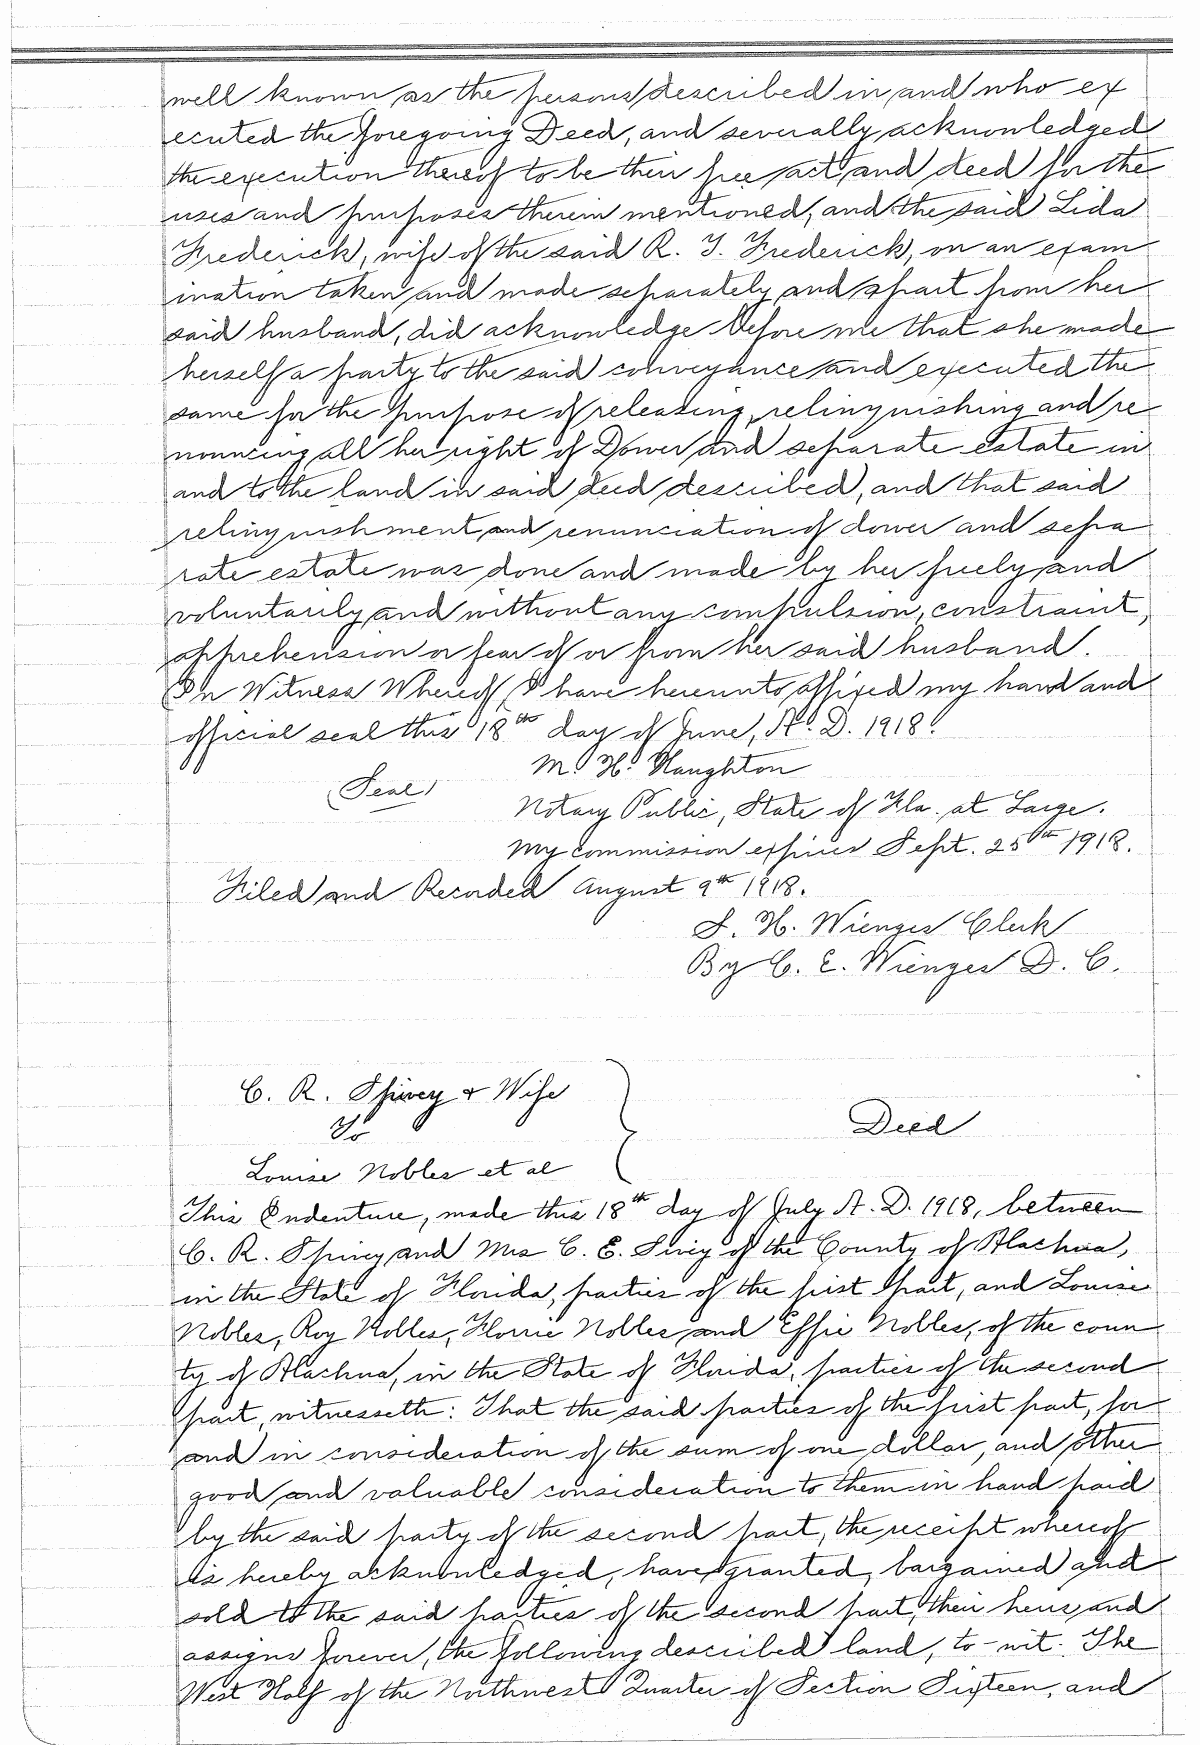 well known as the persons described in and who ex
ecuted the foregoing Deed, and severally acknowledged
the execution thereof to be their free act and deed for the
uses and purposes therein mentioned; and the said Lida
Frederick, wife of the said R. T. Frederick, on an exam
ination taken and made separately and apart from her
said husband, did acknowledge before me that she made
herself a party to the said conveyance and executed the
same for the purpose of releasing, relinquishing and re
nouncing all her right of Dower and separate estate in
and to the land in said deed described, and that said
relinquishment and renunciation of dower and sepa
rate estate was done and made by her freely and
voluntarily and without any compulsion, constraint,
apprehension or fear of or from her said husband.
In Witness Whereof, I have hereunto affixed my hand and
official seal this 18th day of June, A. D. 1918.
M. H. Haughton
(Seal)
Notary Public, State of Fla. at Large.
My commission expires Sept. 25th 1918.
Filed and Recorded August 9th 1918.
S. H. Wienges Clerk
By C. E. Wienges D. C.
C. R. Spivey & Wife
To
Deed
Louise Nobles et al
This Indenture, made this 18th day of July A. D. 1918, between
C. R. Spivey and Mrs C. E. Sivey of the County of Alachua,
in the State of Florida, parties of the first part, and Louise
Nobles, Roy Nobles, Florrie Nobles and Effie Nobles, of the coun
ty of Alachua, in the State of Florida, parties of the second
part, witnesseth: That the said parties of the first part, for
and in consideration of the sum of one dollar, and other
good and valuable consideration to them in hand paid
by the said party of the second part, the receipt whereof
is hereby acknowledged, have granted, bargained and
sold to the said parties of the second part, their heirs and
assigns forever, the following described land, to-wit: The
West Half of the Northwest Quarter of Section Sixteen, and